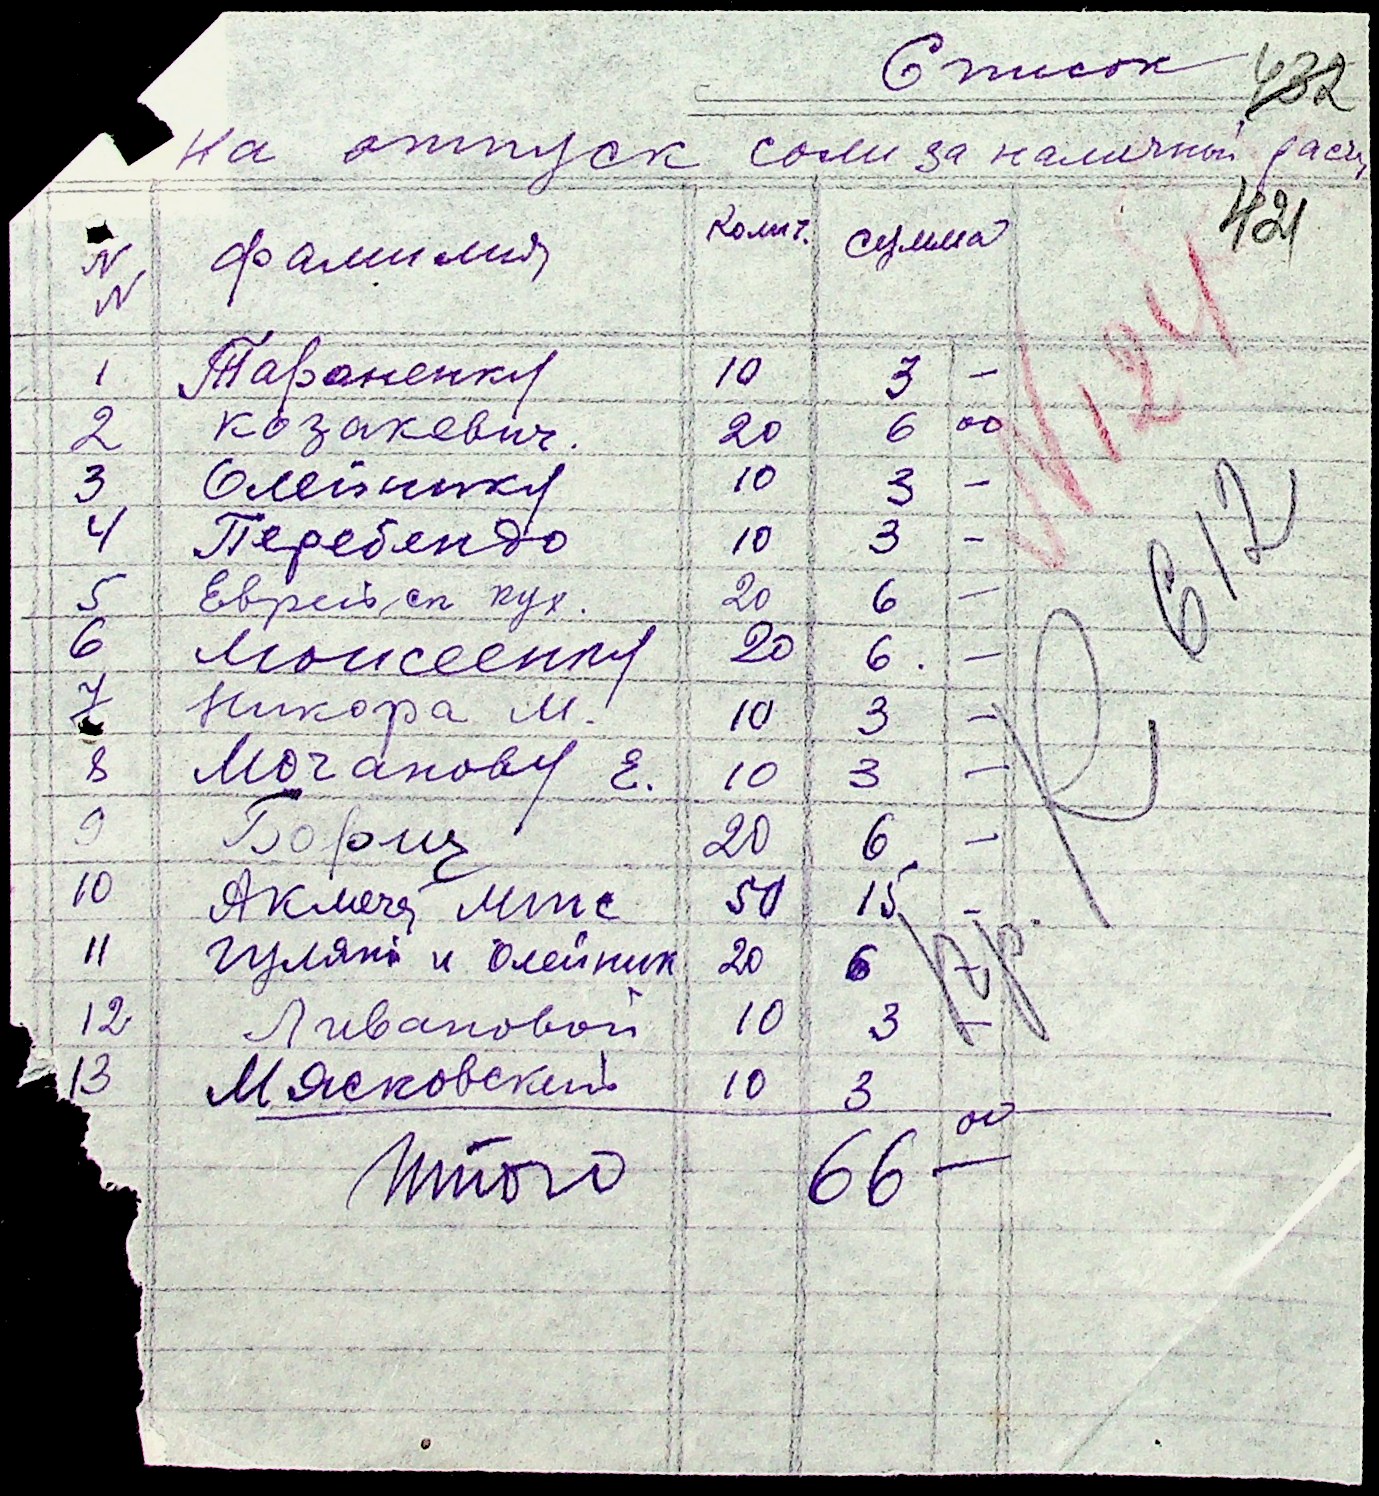 Список 432
на отпуск соли за наличный расч
421
N N фамилия колич. сумма
N 124
1 Тараненку 10 3 —
2 Козакевич. 20 6 00
3 Олейнику 10 3 —
4 Перебендо 10 3 —
5 Еврейск кух. 20 6 —
6 Моисеенку 20 6. —
7 Никора М. 10 3 —
8 Мочанову Е. 10 3 —
9 Борщ 20 6 —
10 МТС 50 15 —
11 и Олейник 20 6 —
12 Ливановой 10 3 —
13 Мясковский 10 3
Итого 66 00
612